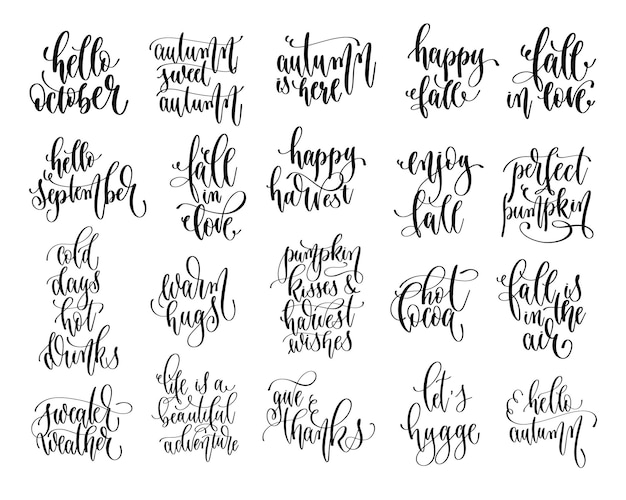 hello
october
autumn
sweet
autumn
autumn
is here
happy
fall
fall
in love
hello
september
fall
in
love
happy
harvest
enjoy
fall
perfect
pumpkin
cold
days
hot
drinks
warm
hugs
pumpkin
kisses &
harvest
wishes
hot
cocoa
fall is
in the
air
sweater
weather
life is a
beautiful
adventure
give
thanks
let's
hygge
hello
autumn